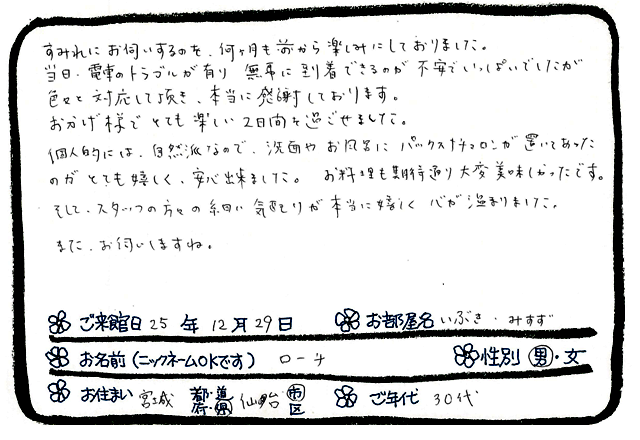 すみれにお伺いするのを、何ヶ月も前から楽しみにしておりました。
当日、電車のトラブルが有り 無事に到着できるのか 不安でいっぱいでしたが
色々と対応して頂き、本当に感謝しております。
おかげ様で とても楽しい2日間を過ごせました。
個人的には、自然派なので、洗面やお風呂に パックスナチュロンが置いてあった
のが とても嬉しく、安心出来ました。 お料理も期待通り 大変美味しかったです。
そして、スタッフの方々の細い気配りが本当に嬉しく 心が温まりました。
また、お伺いしますね。
ご来館日 25 年 12 月 29 日 お部屋名 いぶき・みすず
お名前(ニックネームOKです) ローチ 性別 男・女
お住まい 宮城 都・道・府・県 仙台 市 区 ご年代 30代